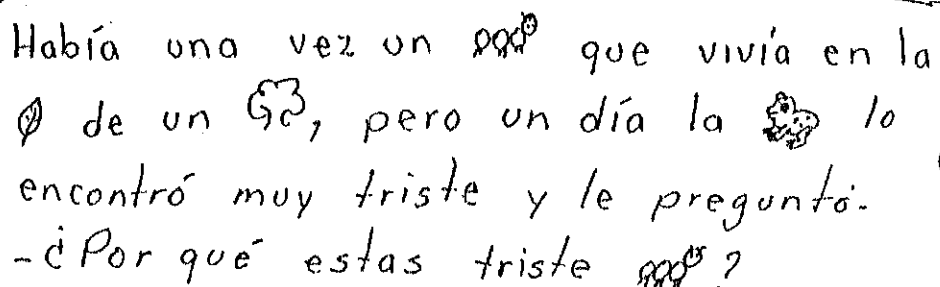 Había una vez un que vivía en la
de un , pero un día la lo
encontró muy triste y le preguntó.
-¿Por qué estas triste ?